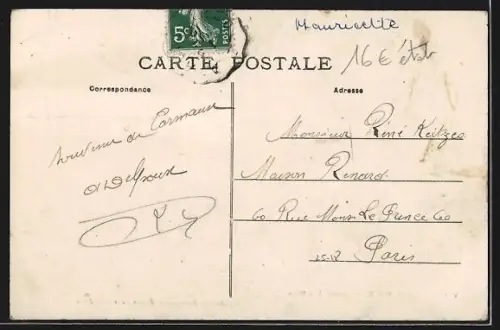 Mauricette
5c
16 €
CARTE POSTALE
Correspondance
Adresse
Souvenir de Carmaux
Monsieur René
Maison Renard
60 Rue Mons. Le Prince 60
Paris